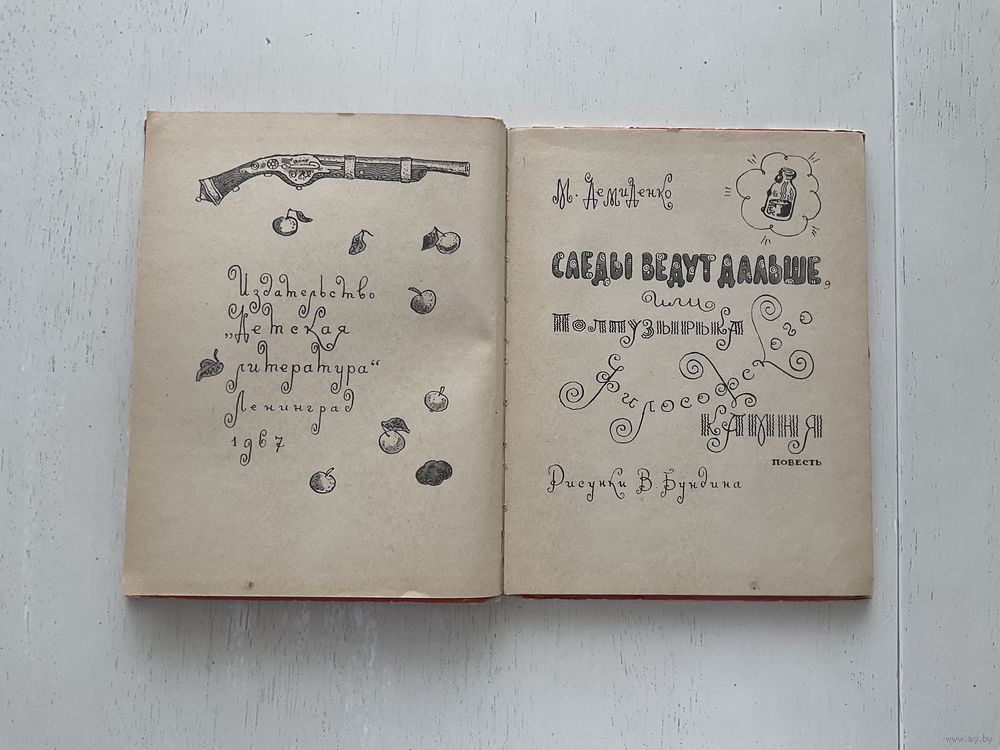 Издательство
„Детская
литература“
Ленинград
1967
М. Демиденко
СЛЕДЫ ВЕДУТ ДАЛЬШЕ,
или
Полпузырька
Философского
КАМНЯ
ПОВЕСТЬ
Рисунки В. Бундина
www.ay.by